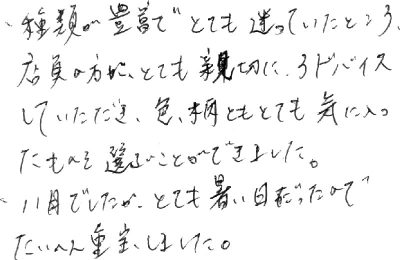 ・種類が豊富でとても迷っていたところ、
店員の方が、とても親切に、アドバイス
していただき、色、柄ともとても気に入っ
たものを選ぶことができました。
・11月でしたが、とても暑い日だったので
たいへん重宝しました。